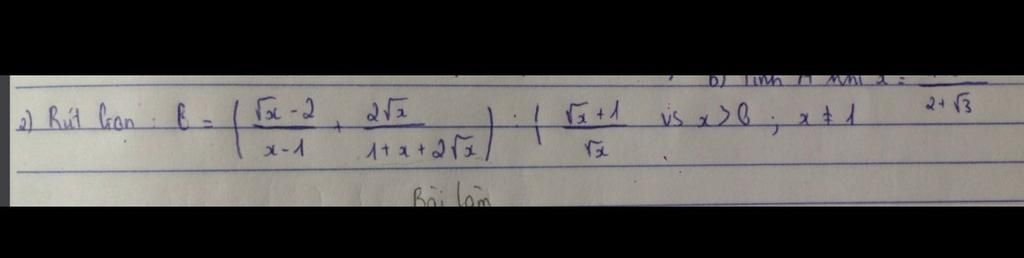 b) Tính A khi x =
2+√3
2) Rút Gọn : B = ( (√x - 2)/(x - 1) + 2√x/(1 + x + 2√x) ) : ( (√x + 1)/√x vs x > 0 ; x ≠ 1
Bài làm